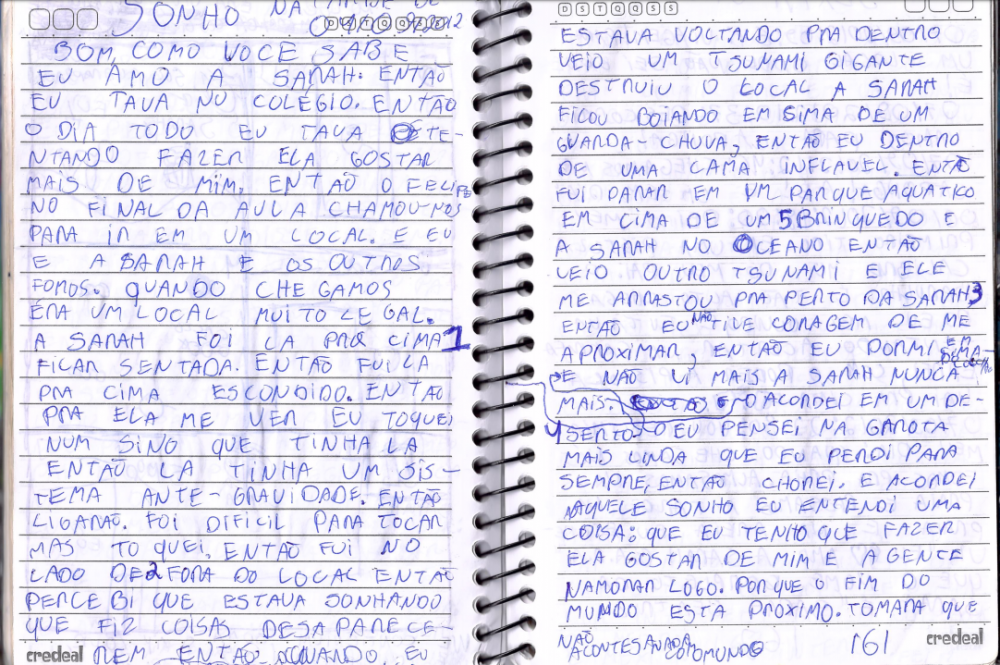 SONHO NA
BOM, COMO VOCE SABE
EU AMO A SARAH. ENTAO
EU TAVA NO COLÉGIO. ENTÃO
O DIA TODO EU TAVA TE-
NTANDO FAZER ELA GOSTAR
MAIS DE MIM, ENTÃO O FELIPE
NO FINAL DA AULA CHAMOU-NOS
PARA IR EM UM LOCAL. E EU
E A SARAH E OS OUTROS
FOMOS. QUANDO CHEGAMOS
ERA UM LOCAL MUITO LEGAL.
A SARAH FOI LA PRA CIMA 1
FICAR SENTADA. ENTÃO FUI LA
PRA CIMA ESCONDIDO. ENTAO
PRA ELA ME VER EU TOQUEI
NUM SINO QUE TINHA LA
ENTÃO LA TINHA UM SIS-
TEMA ANTE-GRAVIDADE. ENTAO
LIGARAO. FOI DIFICIL PARA TOCAR
MAS TOQUEI, ENTÃO FUI NO
LADO DE 2 FORA DO LOCAL ENTAO
PERCEBI QUE ESTAVA SONHANDO
QUE FIZ COISAS DESAPARECE-
REM ENTAO QUANDO EU
credeal
D S T Q Q S S
ESTAVA VOLTANDO PRA DENTRO
VEIO UM TSUNAMI GIGANTE
DESTRUIU O LOCAL A SARAH
FICOU BOIANDO EM SIMA DE UM
GUARDA-CHUVA, ENTÃO EU DENTRO
DE UMA CAMA INFLAVEL. ENTÃO
FUI PARAR EM UM PARQUE AQUATICO
EM CIMA DE UM 5 BRINQUEDO E
A SARAH NO OCEANO ENTÃO
VEIO OUTRO TSUNAMI E ELE
ME ARRASTOU PRA PERTO DA SARAH 3
ENTÃO EU NÃO TIVE CORAGEM DE ME
APROXIMAR, ENTÃO EU DORMI EM
E NÃO VI MAIS A SARAH NUNCA
MAIS. ACORDEI EM UM DE-
4 SERTO. EU PENSEI NA GAROTA
MAIS LINDA QUE EU PERDI PARA
SEMPRE, ENTÃO CHOREI. E ACORDEI
NAQUELE SONHO EU ENTENDI UMA
COISA: QUE EU TENHO QUE FAZER
ELA GOSTAR DE MIM E A GENTE
NAMORAR LOGO. PORQUE O FIM DO
MUNDO ESTA PROXIMO. TOMARA QUE
NÃO ACONTESA NADA CO O MUNDO
161 credeal